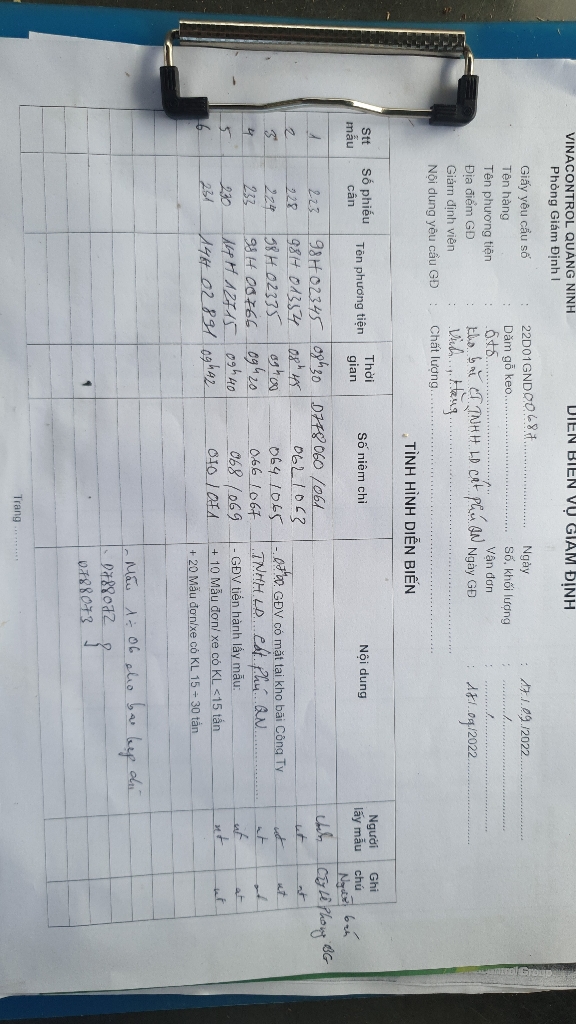 VINACONTROL QUẢNG NINH
Phòng Giám Định I
DIỄN BIẾN VỤ GIÁM ĐỊNH
Giấy yêu cầu số : 22D01GND00687 Ngày : 17/.09/2022
Tên hàng : Dăm gỗ keo Số, khối lượng : /
Tên phương tiện : Ôtô Vận đơn : /
Địa điểm GD : Kho bãi CT TNHH LD Cát Phú QN Ngày GD : 18/.09/2022
Giám định viên :
Nội dung yêu cầu GD : Chất lượng
TÌNH HÌNH DIỄN BIẾN
Stt mẫu Số phiếu cân Tên phương tiện Thời gian Số niêm chì Nội dung Người lấy mẫu Ghi chú
Người bán
1 223 98H 02345 08h30 0778060/061 CTy Lê Phong BG
2 228 98H 01354 08h45 062/063 nt nt
3 224 98H 02335 09h00 064/065 - 07h00 GĐV có mặt tại kho bãi Công Ty nt nt
4 233 98H 00766 09h20 066/067 TNHH LD Cát Phú QN nt nt
5 230 14H 12715 09h40 068/069 - GĐV tiến hành lấy mẫu: nt nt
6 231 14H 02891 09h42 070/071 + 10 Mẫu đơn/ xe có KL <15 tấn nt nt
+ 20 Mẫu đơn/xe có KL 15 ÷ 30 tấn
- Mẫu 1 ÷ 06 cho
0788072
0788073
Trang